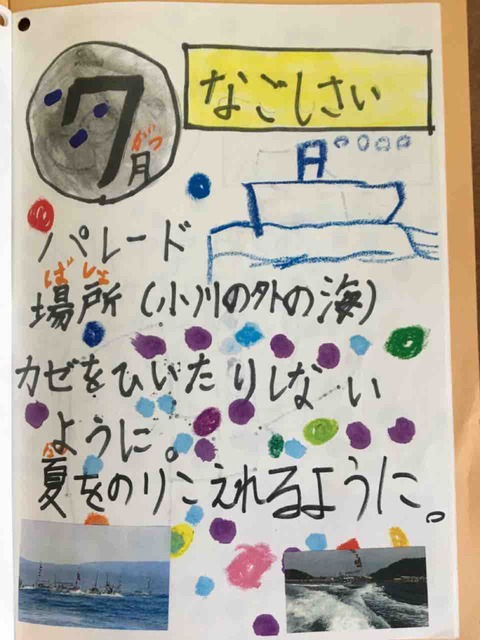 7
がつ
月
なごしさい
パレード
ばしょ
場所(小川の外の海)
カゼをひいたりしない
ように。
なつ
夏をのりこえれるように。